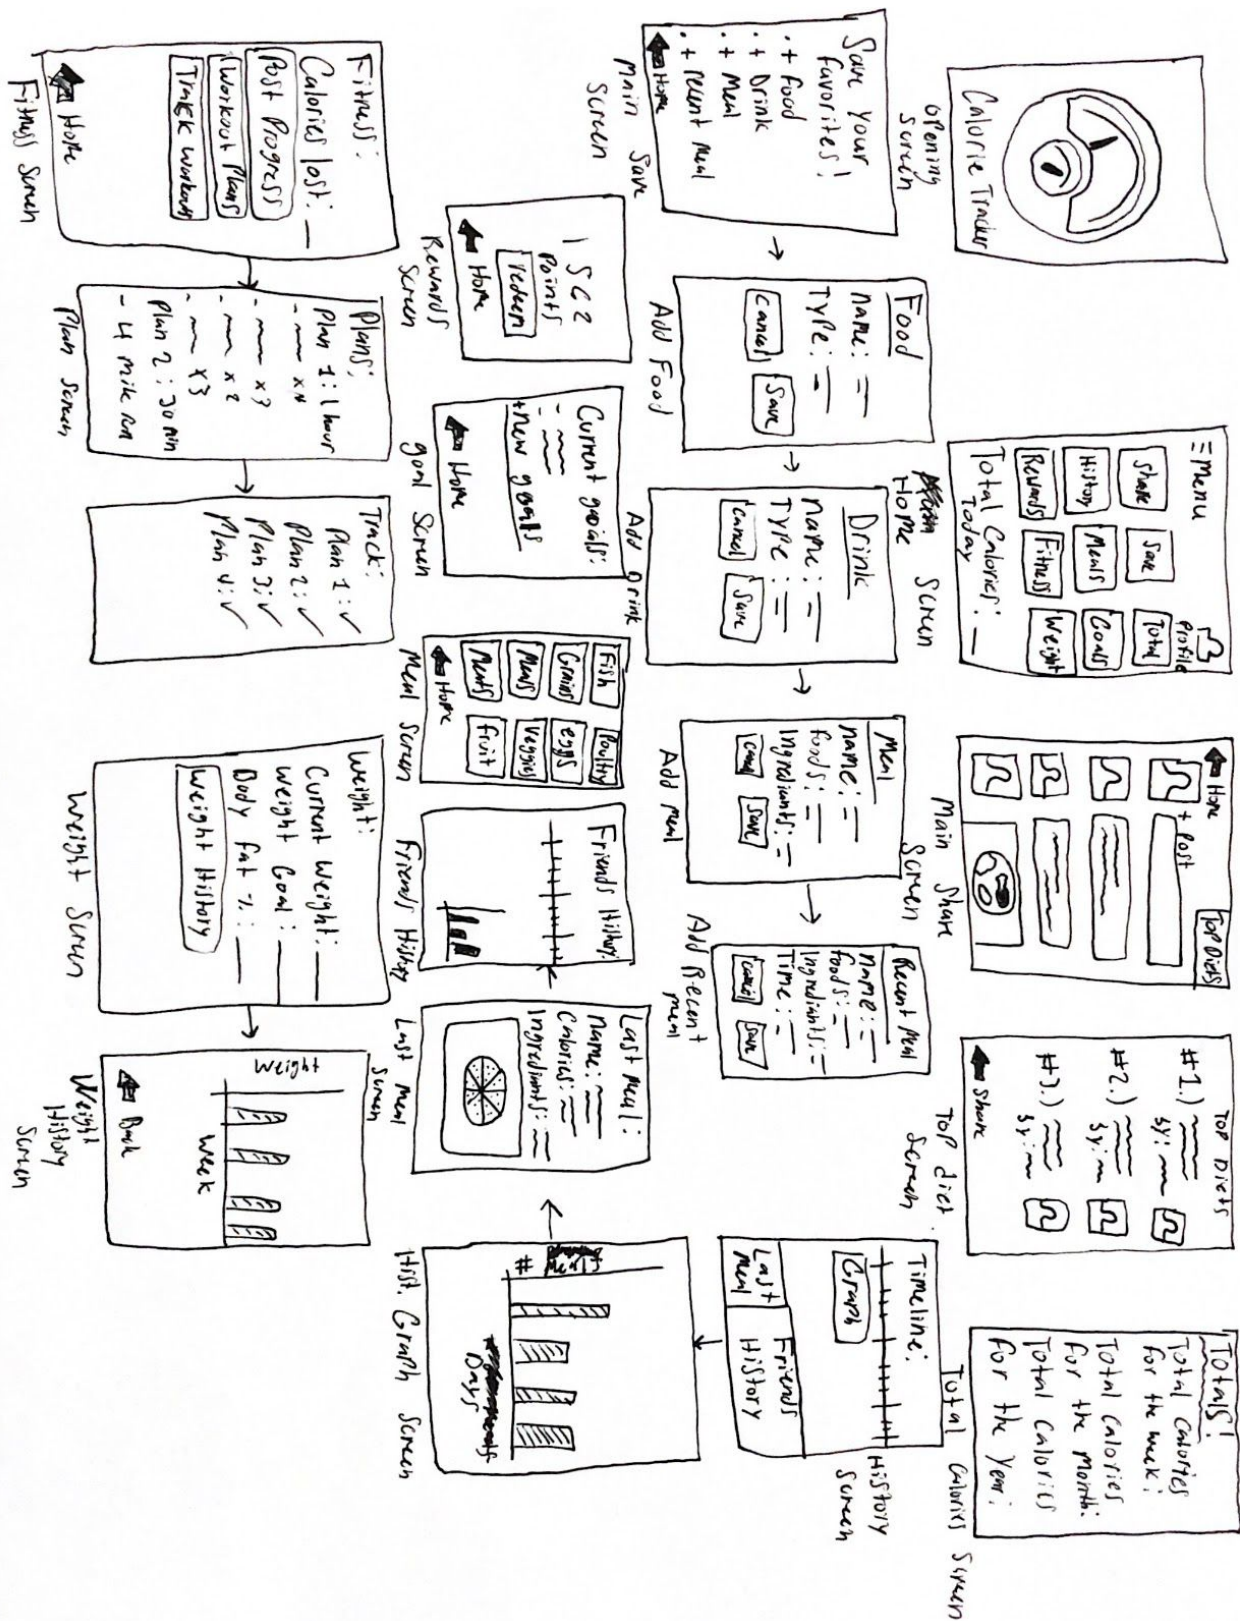 Calorie Tracker
opening
screen
≡ Menu
Profile
Share
Save
Total
History
Meals
Goals
Rewards
Fitness
Weight
Total Calories: _
Today
Home Screen
Home
Top Diets
+ Post
Main Share
Screen
Top Diets
#1.)
By:
#2.)
By:
#3.)
By:
Share
Top diet
Screen
Totals!
Total Calories
for the week:
Total Calories
for the Month:
Total Calories
for the Year:
Total Calories Screen
Save your
favorites!
+ Food
+ Drink
+ Meal
+ recent meal
Home
Main Save
Screen
Food
name:
Type:
Cancel
Save
Add Food
Drink
name:
Type:
Cancel
Save
Add Drink
Meal
name:
foods:
Ingrediants:
Cancel
Save
Add meal
Recent Meal
name:
foods:
Ingrediants:
Time:
Cancel
Save
Add Recent
meal
Timeline:
Graph
Last
Meal
Friends
History
History
Screen
1562
Points
redeem
Home
Rewards
Screen
Current goals:
+new goals
Home
goal Screen
Fish
Poultry
Grains
eggs
Veggies
Meats
fruit
Home
Meal Screen
Friends History:
Friends History
Last Meal:
Name:
Calories:
Ingrediants:
Last meal
screen
#
Days
Hist. Graph Screen
Fitness:
Calories lost: _
Post Progress
Workout Plans
Track workouts
Home
Fitness Screen
Plans:
Plan 1: 1 hour
x3
x2
x3
Plan 2: 30 min
- 4 mile run
Plan Screen
Track:
Plan 1: ✓
Plan 2: ✓
Plan 3: ✓
Plan 4: ✓
Weight:
Current Weight: _
Weight Goal: _
Body fat %: _
Weight History
Weight Screen
Weight
Week
Back
Weight
History
Screen